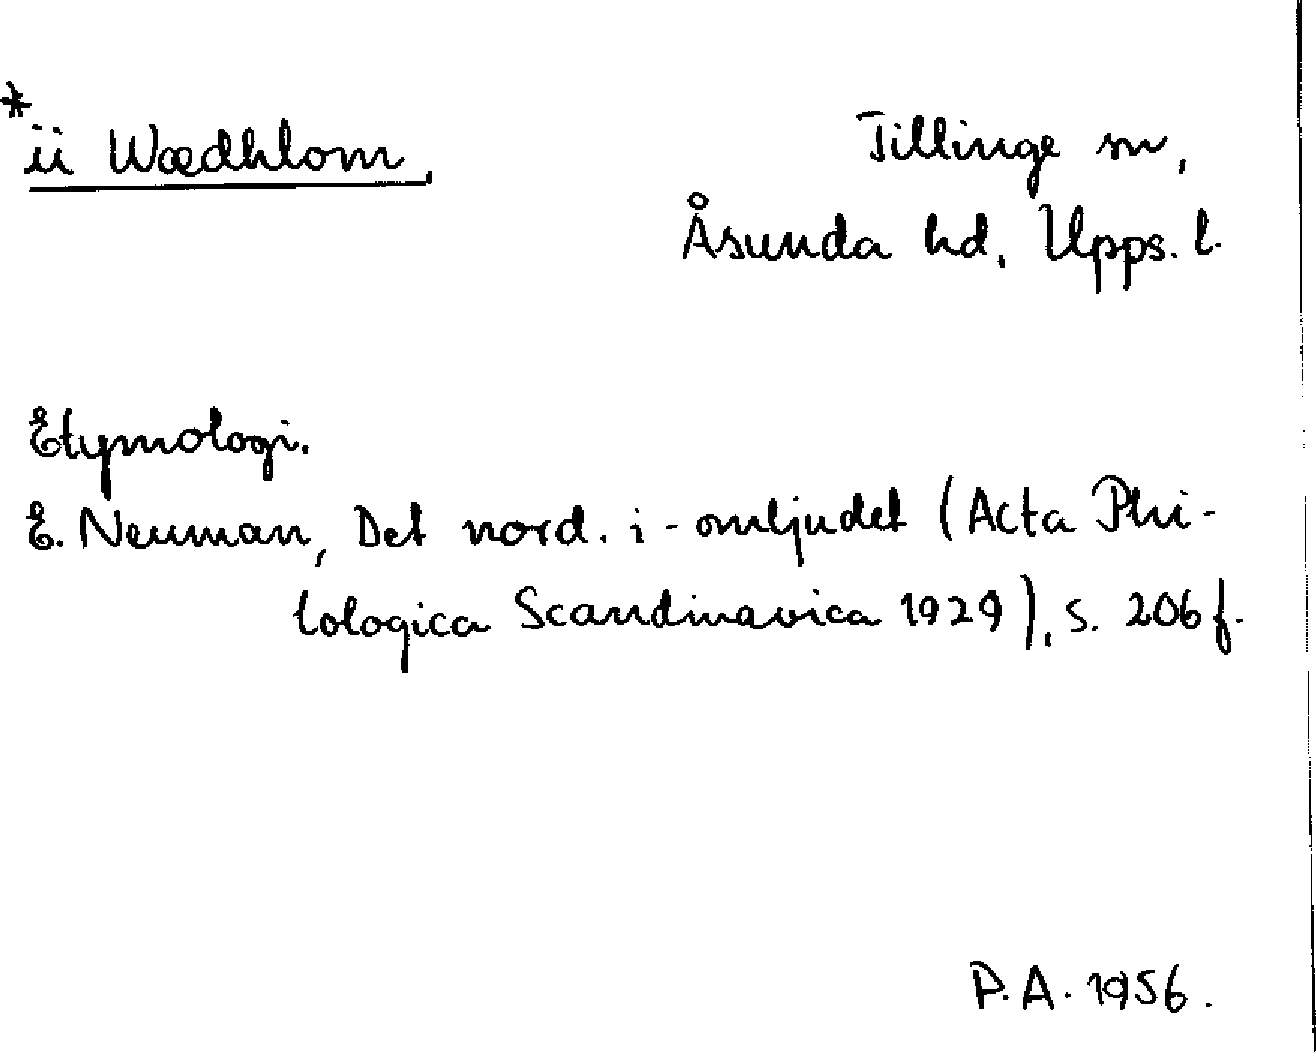 *ii Wædhlom, Tillinge sn,
Åsunda hd, Upps. l.
Etymologi.
E. Neuman, Det nord. i-omljudet (Acta Phi-
lologica Scandinavica 1929), s. 206 f.
P.A. 1956.